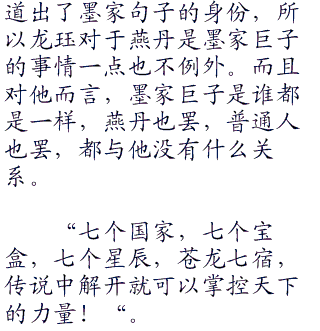 道出了墨家句子的身份，所
以龙珏对于燕丹是墨家巨子
的事情一点也不例外。而且
对他而言，墨家巨子是谁都
是一样，燕丹也罢，普通人
也罢，都与他没有什么关
系。
“七个国家，七个宝
盒，七个星辰，苍龙七宿，
传说中解开就可以掌控天下
的力量！“。